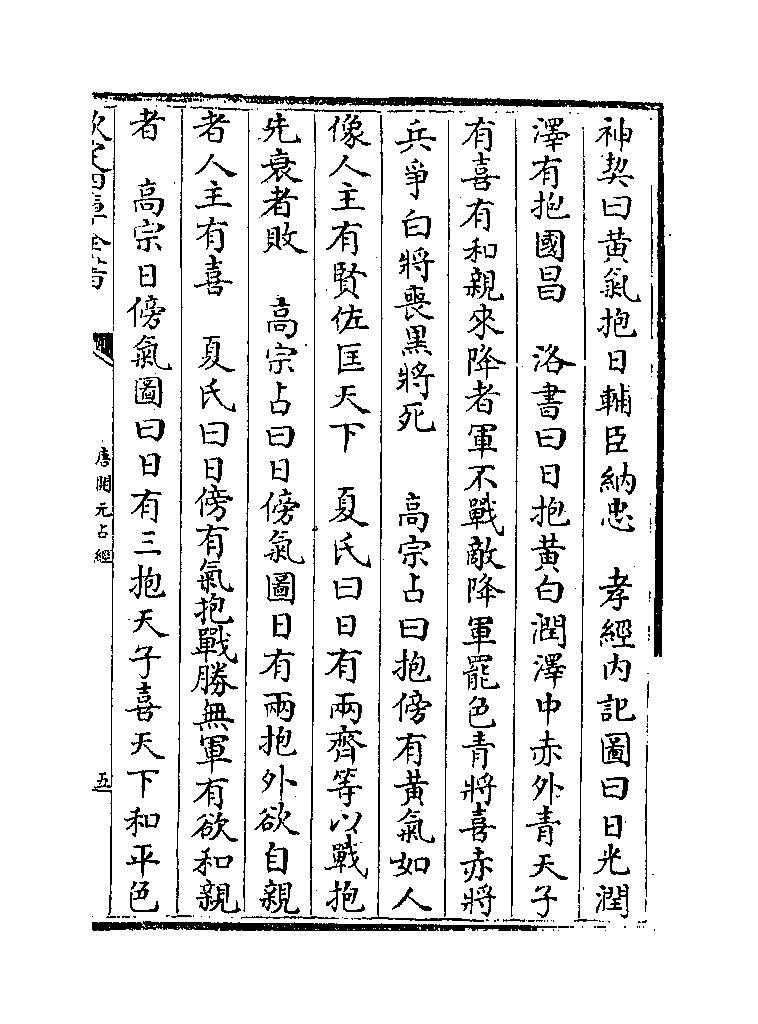 神契曰黄氣抱日輔臣納忠　孝經内記圖曰日光潤
澤有抱國昌　洛書曰日抱黄白潤澤中赤外青天子
有喜有和親來降者軍不戰敵降軍罷色青將喜赤將
兵爭白將喪黑將死　高宗占曰抱傍有黄氣如人
像人主有賢佐匡天下　夏氏曰日有兩齊等以戰抱
先衰者敗　高宗占曰日傍氣圖日有兩抱外欲自親
者人主有喜　夏氏曰日傍有氣抱戰勝無軍有欲和親
者　高宗日傍氣圖曰日有三抱天子喜天下和平色
欽定四庫全書
唐開元占經
五